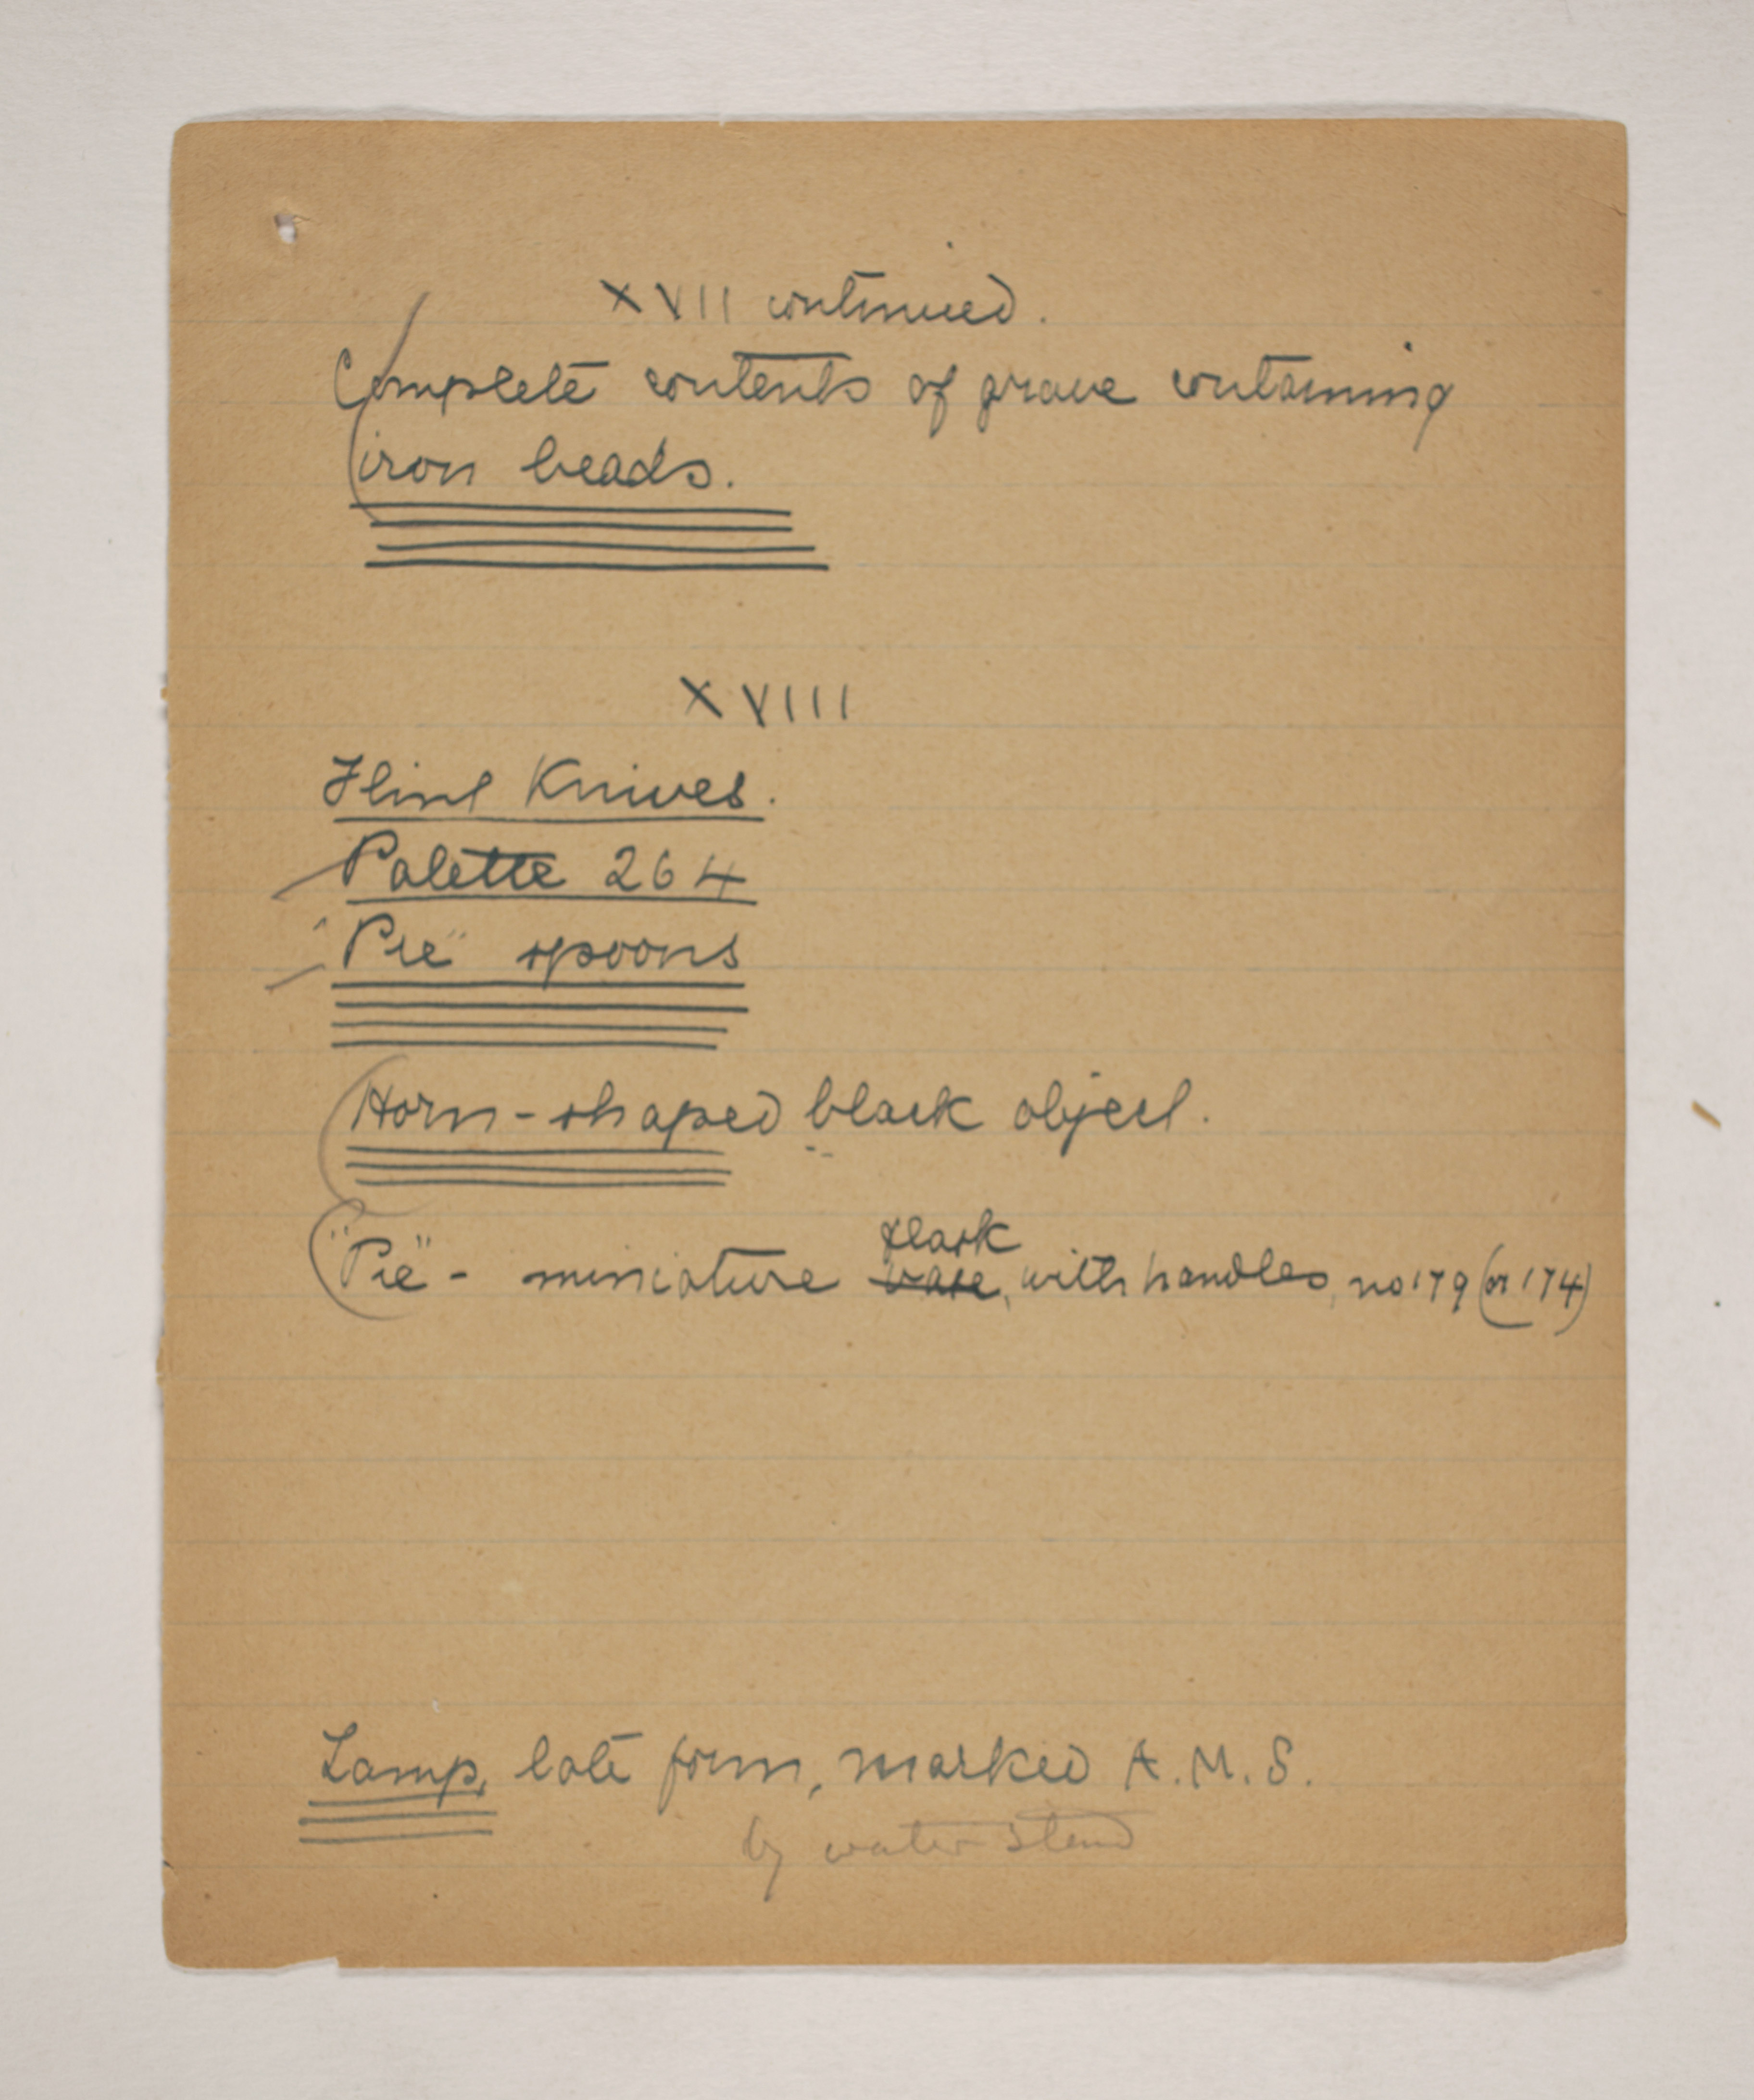 XVII continued.
Complete contents of grave containing
iron beads.
XVIII
Flint Knives.
Palette 264
"Pre" spoons
Horn-shaped black object.
flask
"Pre" - miniature vase, with handles, no 179 (or 174)
Lamp, late form, marked A.M.S.
by water stand